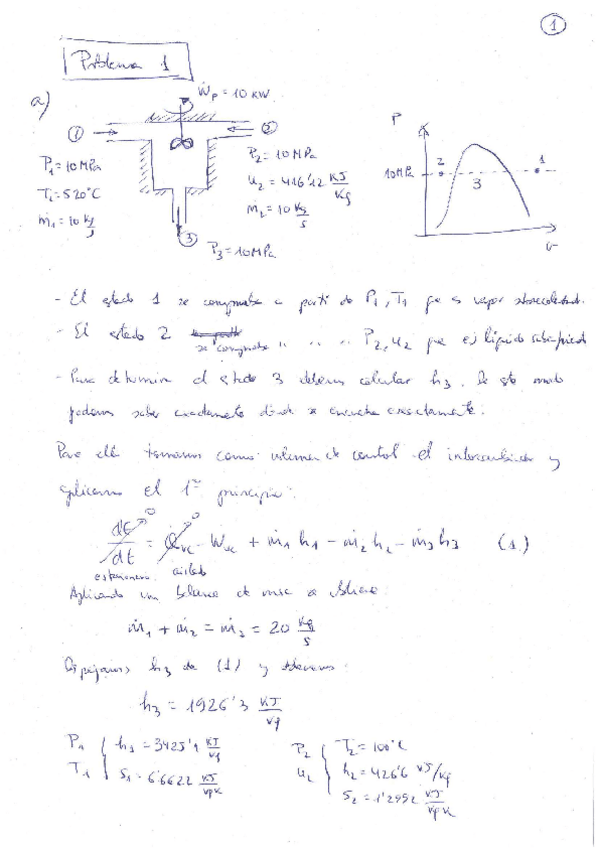 1
Problema 1
a)
Ẇp = 10 KW
1
2
P1 = 10 MPa
T1 = 520°C
ṁ1 = 10 kg/s
P2 = 10 MPa
u2 = 416'12 KJ/Kg
ṁ2 = 10 kg/s
3
P3 = 10 MPa
P
10 MPa
2
3
1
v
- El estado 1 se comprueba a partir de P1, T1 que es vapor sobrecalentado.
- El estado 2 se comprueba " " " P2, u2 que es líquido subenfriado
- Para determinar el estado 3 debemos calcular h3. De este modo
podemos saber exactamente donde se encuentra exactamente.
Para ello tomamos como volumen de control el intercambiador y
aplicamos el 1er principio:
dE/dt = Q̇vc - Ẇvc + ṁ1 h1 - ṁ2 h2 - ṁ3 h3 (1)
0 0
estacionario aislado
Aplicando un balance de masa se obtiene
ṁ1 + ṁ2 = ṁ3 = 20 kg/s
Despejamos h3 de (1) y obtenemos:
h3 = 1926'3 KJ/kg
P1 T1 { h1 = 3425'1 KJ/kg
S1 = 6'6622 KJ/kgK
P2 u2 { T2 = 100°C
h2 = 426'6 KJ/kg
S2 = 1'2992 KJ/kgK